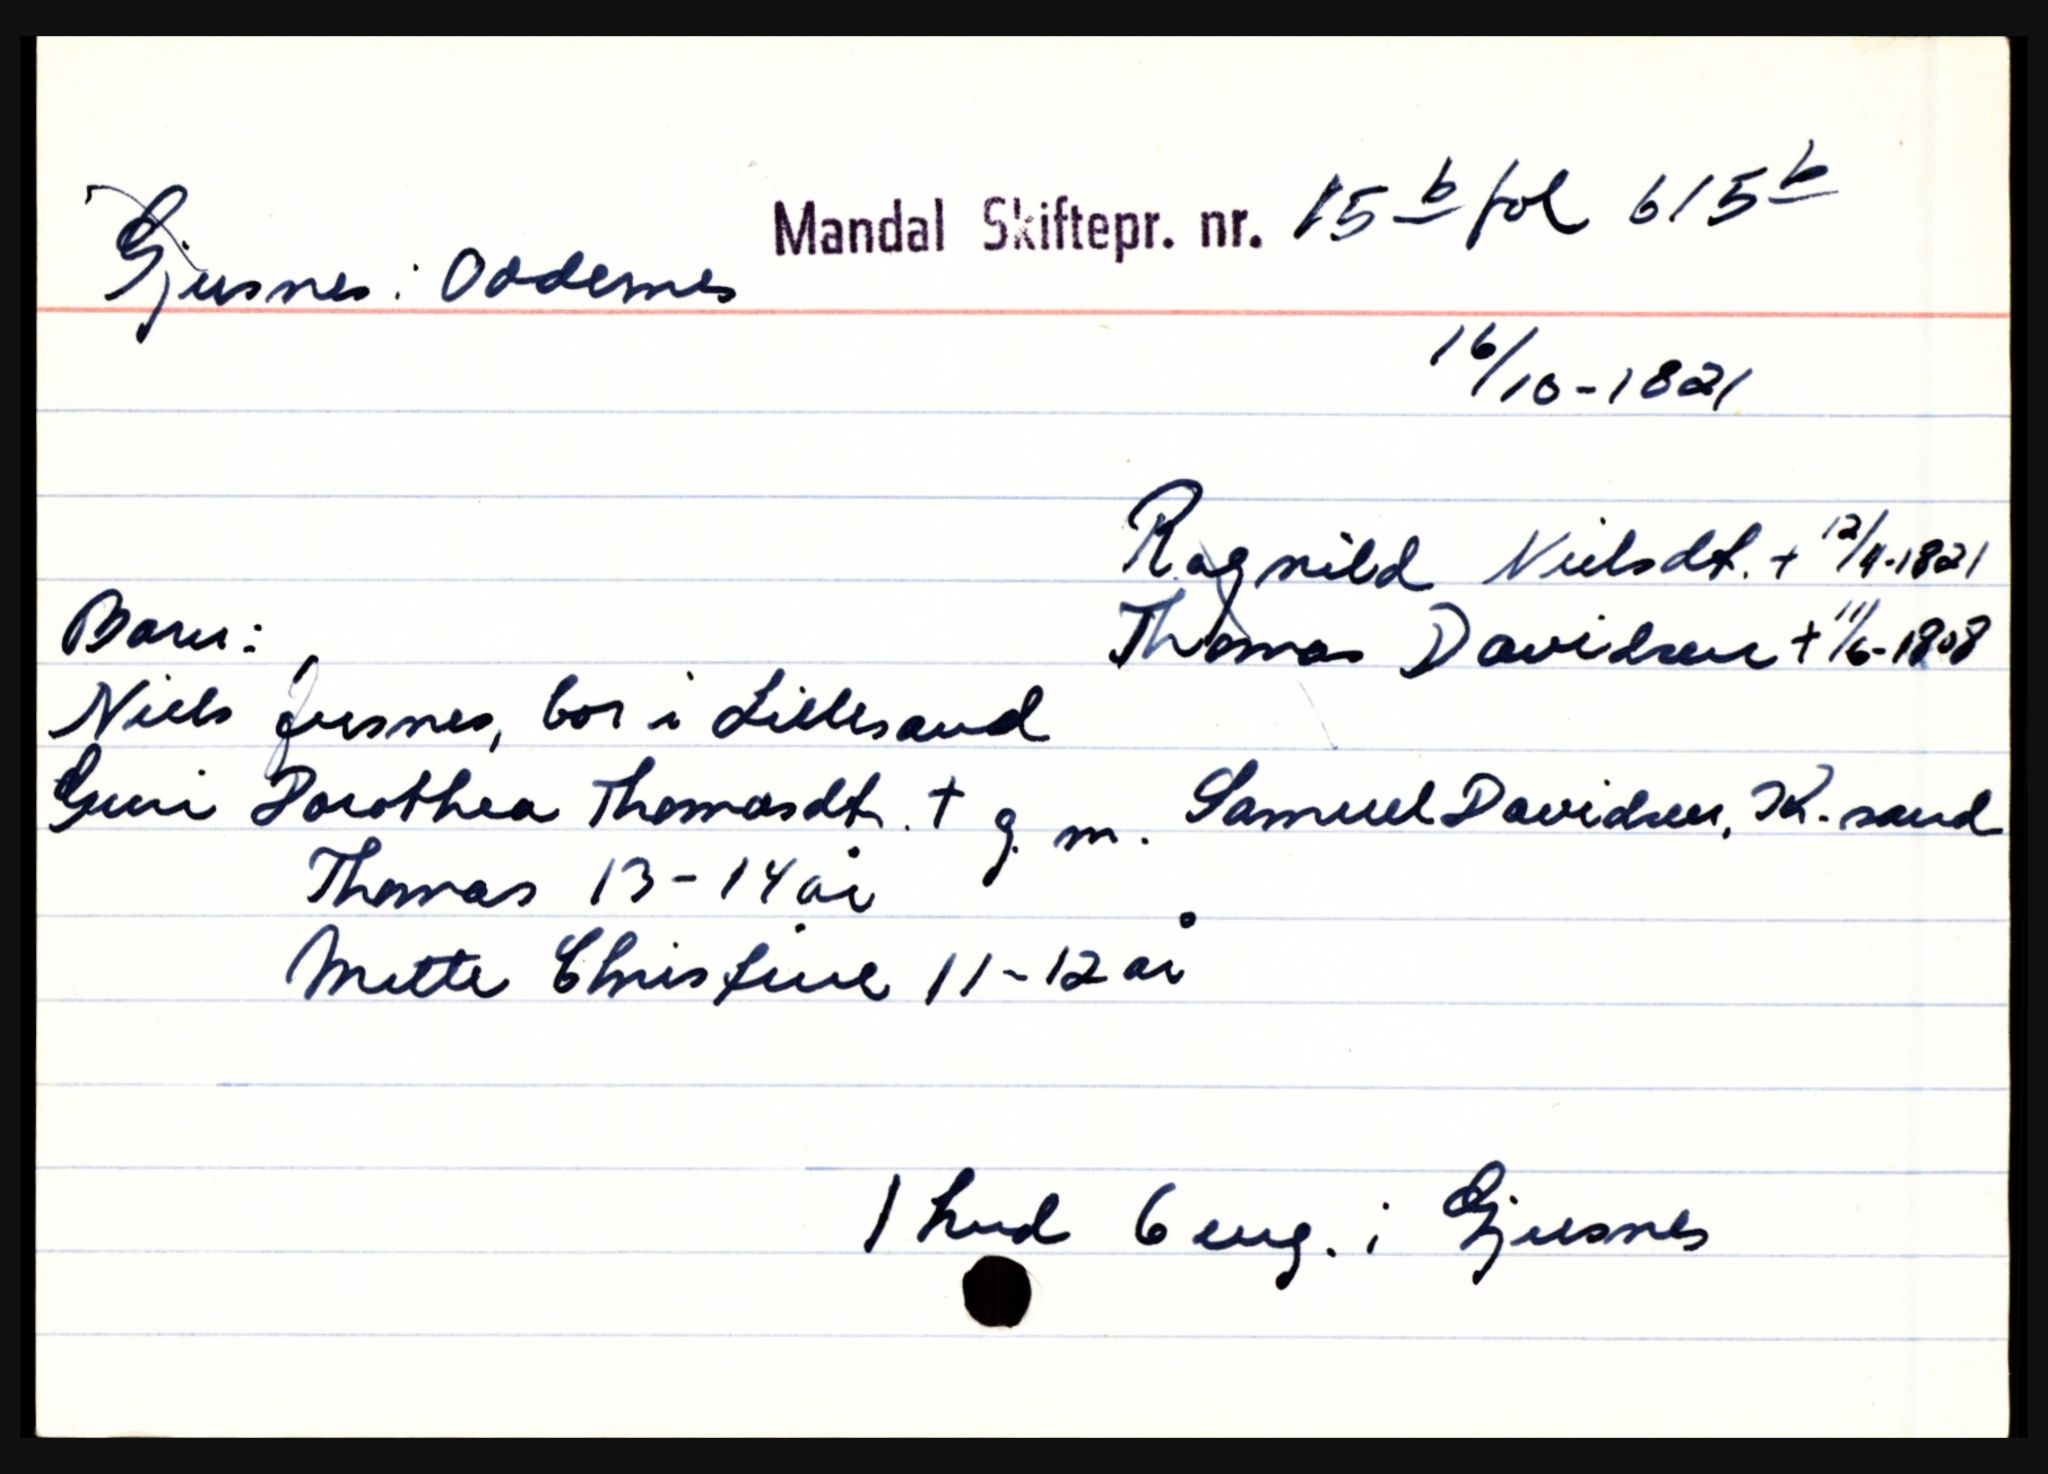 Gjusnes: Oddernes Mandal Skiftepr. nr. 15 b fol 615 b
16/10-1821
Ragnild Nielsdt. + 12/4-1821
Barn: Thomas Davidsen + 11/6-1808
Niels Jusnes, bor i Lillesand
Guri Dorothea Thomasdt. + g. m. Samuel Davidsen, K.sand
Thomas 13-14 år
Mette Christine 11-12 år
1 hud 6 eng. i Gjusnes